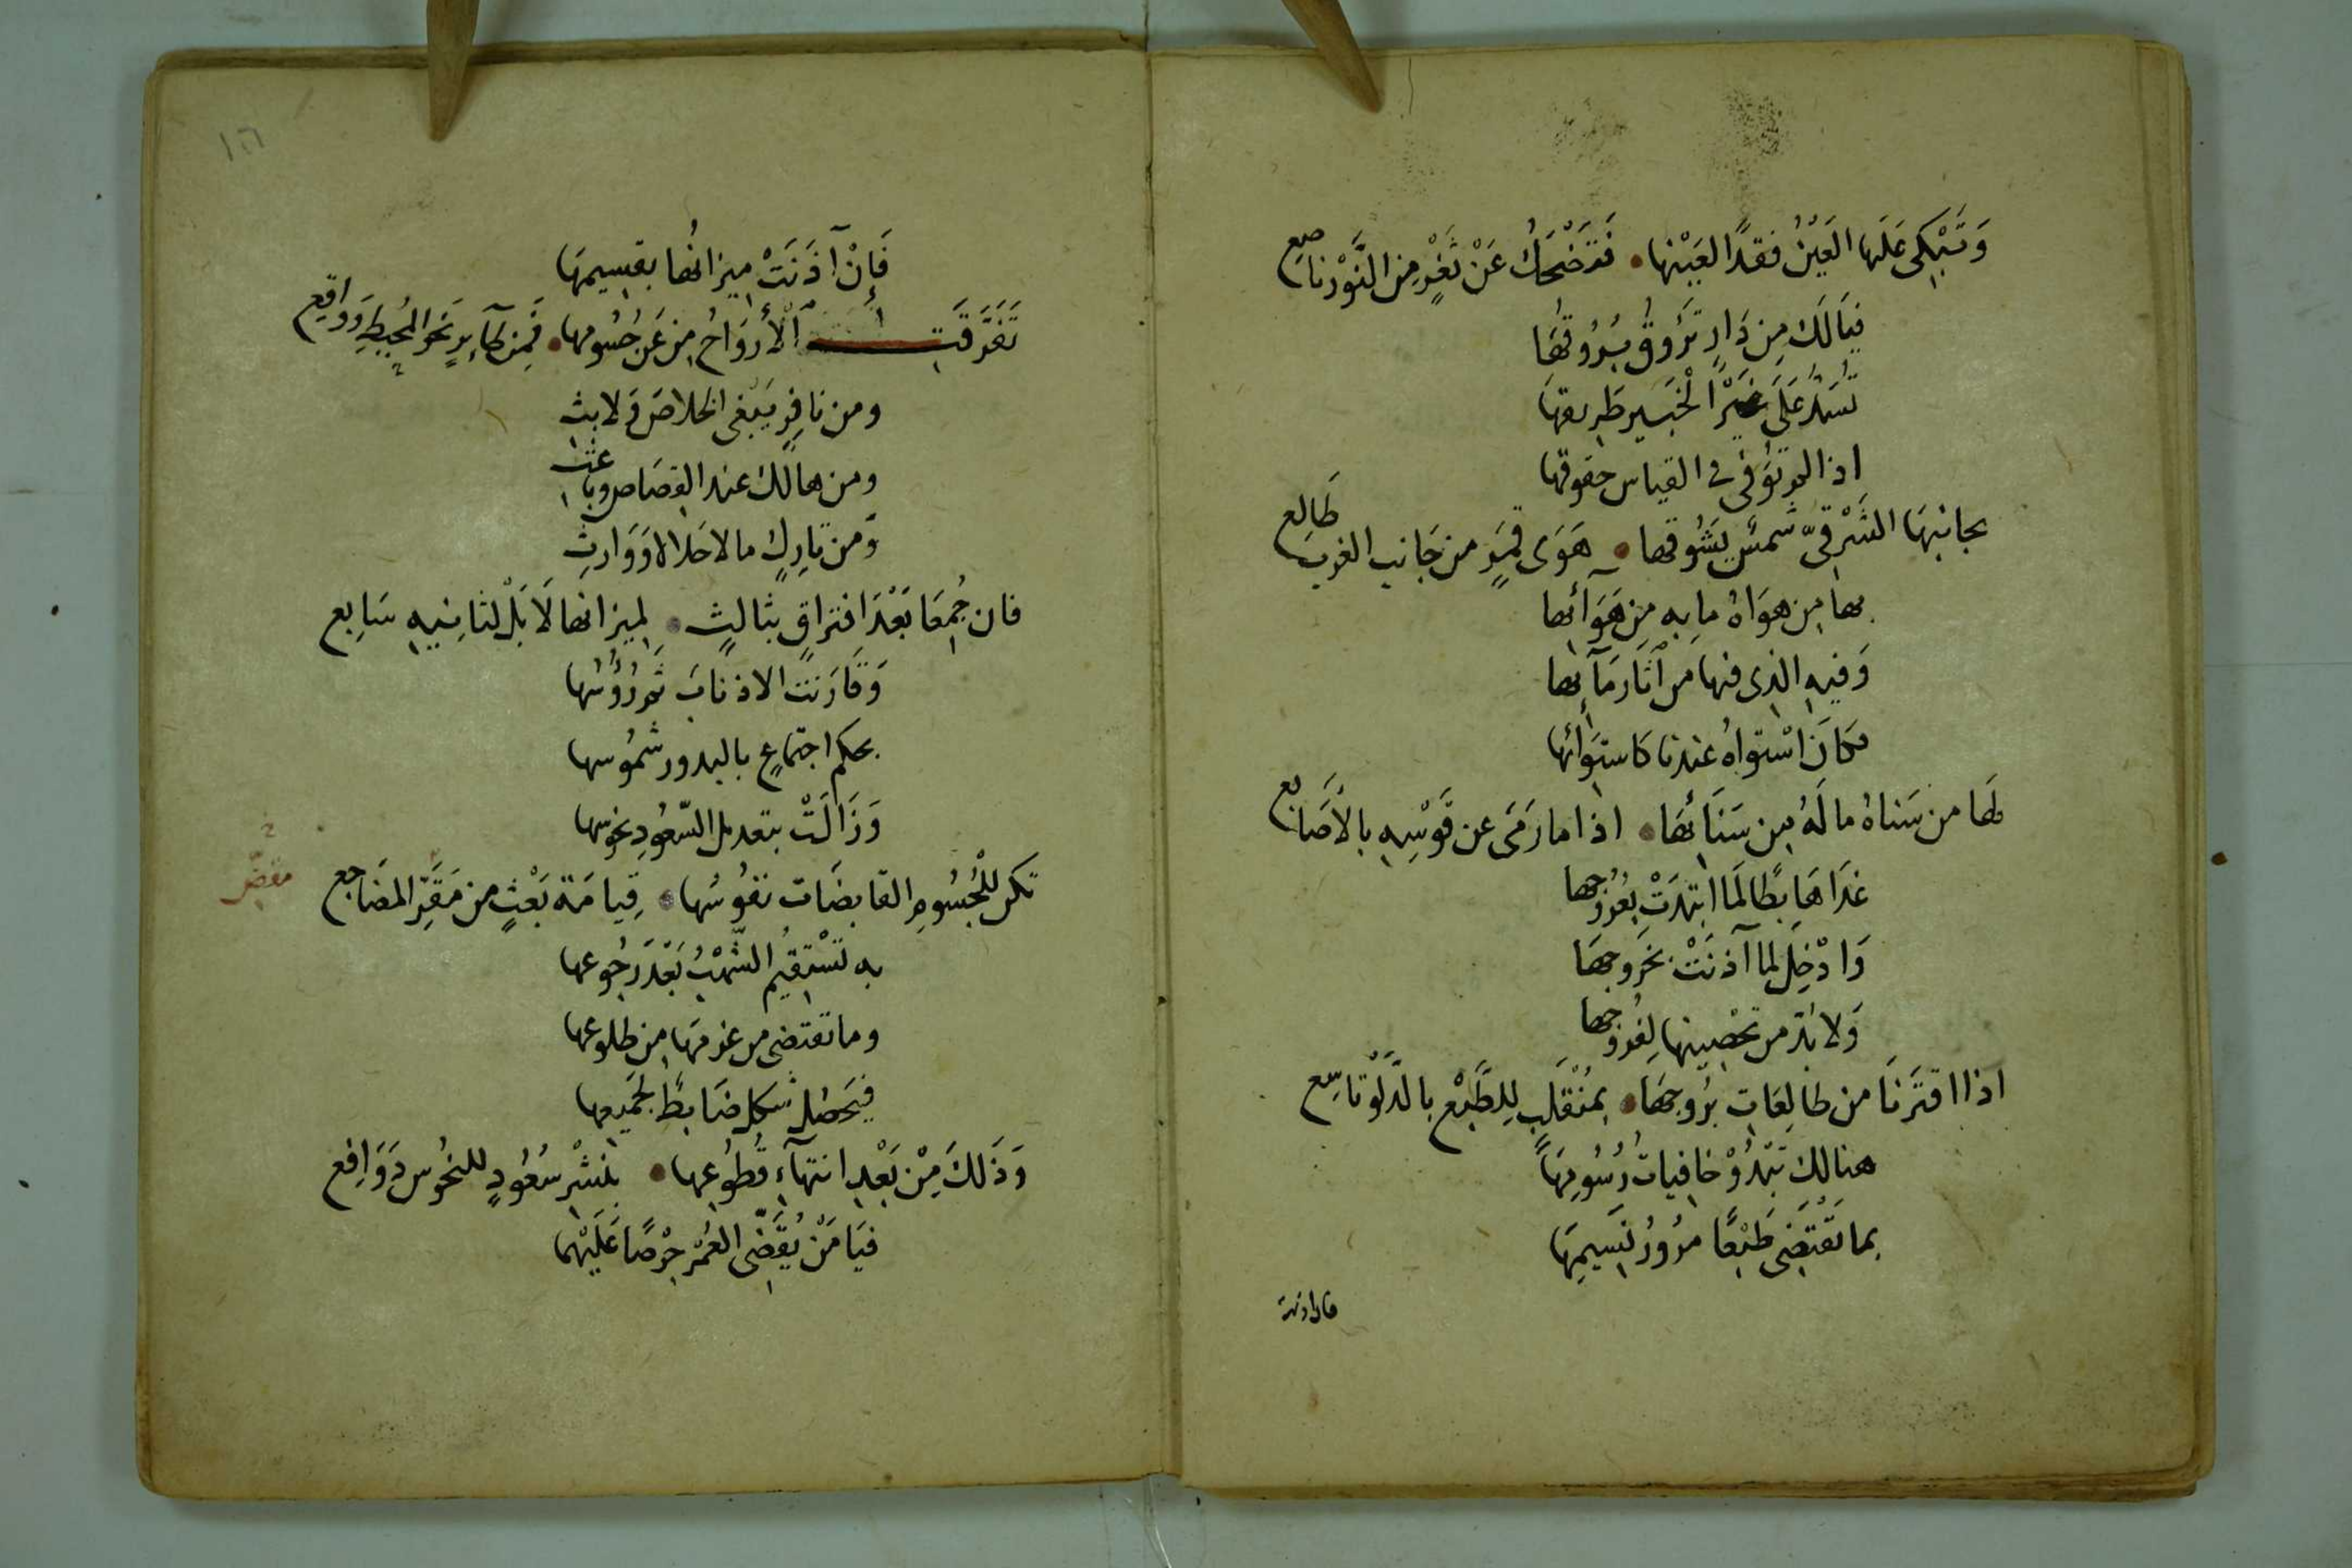 وَتَبْكِي عَلَيها العَيْنُ فقدًا لعَيْنها • فَتَضْحَكُ عَنْ ثَغْرٍ مِن النَّوْر ناصِع
فيَالَكَ مِن دَارٍ تَرُوقُ بُرُوقُهَا
تُسَدُّ عَلَى غَيْرِ الْخَبِير طَرِيقهَا
اذا لم تُوَفَّى في القياس حقوقها
بجانبهَا الشَّرْقيّ شمسٌ يَشُوقها • هَوَى قمَرٍ من جَانب الغرب طَالِع
بها من هوَاهُ ما بِه مِن هَوَآئها
وَفيهِ الذى فيها من آثَار مَآئها
فكَانَ اسْتواهُ عندنا كاستِوَائها
لها من سَناهُ ما لَهُ مِن سَنَائها • اذا ما رَمَى عن قَوْسِهِ بالأَصَابع
غدَا هَابِطًا لَمَا ابتدَتْ بِعُرُوجها
وَادْخِل لما آذنَتْ بخُروجهَا
وَلا بُدّ من تحْصِينها لِفُرُوجها
اذا اقترَنَا من طالِعَاتِ بُرُوجهَا • بمُنْقَلِب لِلطَّبْع بالدَّلْو تاسِع
هنالك تَبْدُوْ خافِياتُ رُسُومِهَا
بما تَقْتَضى طَبْعًا مُرُورُ نَسِيمِهَا
فان اذنت
١٦
فَإِنْ آذَنَتْ ميزانُها بقسِيمهَا
تَفَرَّقَتِ الأَروَاحُ مِن عَن جُسُومها • فَمِن طَآئرٍ نَحوَ المُحِيطِ وَوَاقِع
ومن نافِرٍ يَبْغى الخلاصَ وَلابث
ومن هالك عند القِصَاص وباعث
وَمن تارِكٍ مالا حَلالا وَوَارث
فان جُمِعَا بَعْدَ افتراقٍ بثالثٍ • لميزانها لَا بَلْ لثانِيهِ سَابِع
وَقَارَنت الاذنابَ ثم رُؤُسُها
بحكم اجتماعٍ بالبدور شمُوسها
وَزَالَتْ بتعديل السّعُودِ نحوسها
تكن للجُسُومِ القابضَات نفُوسُها • قِيامَة بَعْثٍ من مَقَرِّ المضَاجع
به تَسْتقيمُ الشّهْبُ بَعْدَ رجُوعها
وما تقتضى من غربهَا مِن طلوعها
فيَحصُل شكل ضَابطًا لجميعها
وَذَلكَ مِنْ بَعْدِ انتهآءِ قُطُوعِها • بنشْرِ سُعُودٍ للنحُوس دَوَافِع
فيَا مَنْ يُقَضّى العُمْرَ حِرْصًا عَلَيْهما